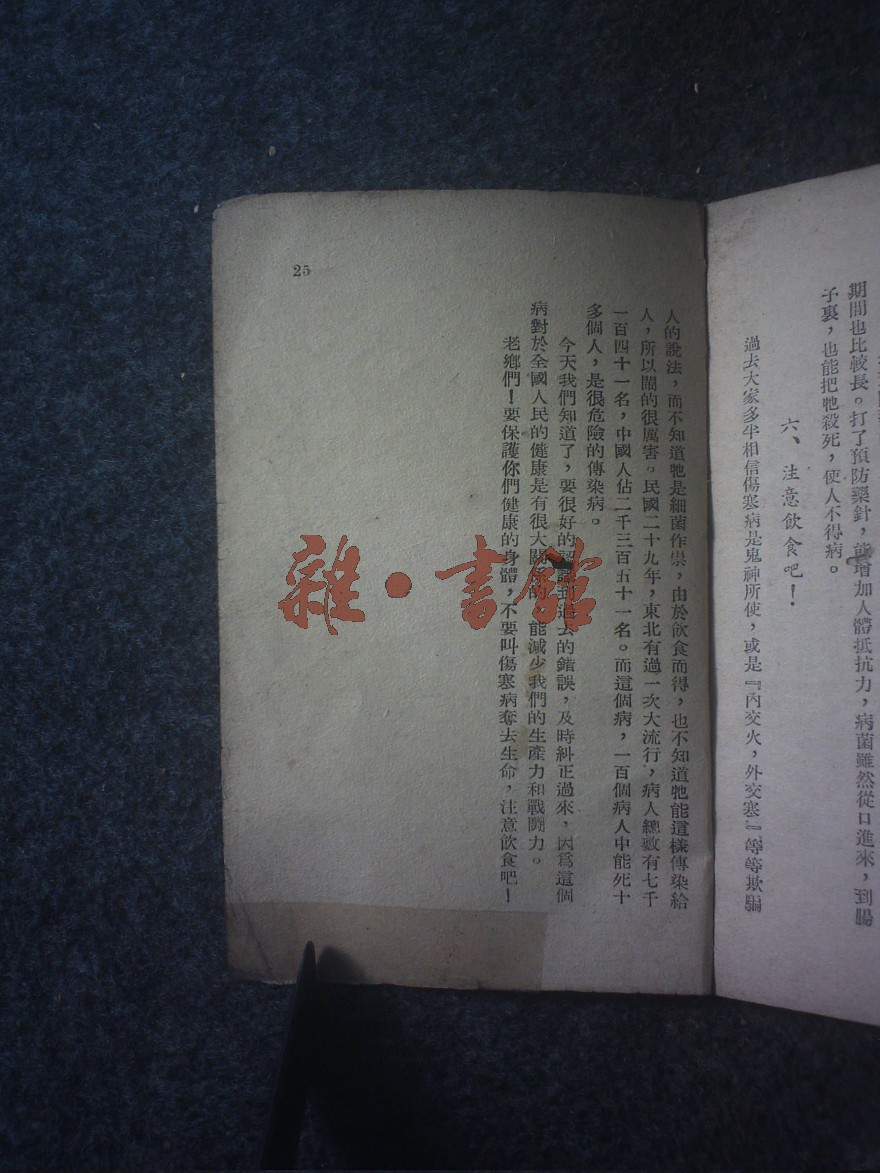 期間也比較長。打了預防藥針，能增加人體抵抗力，病菌雖然從口進來，到腸
子裏，也能把牠殺死，使人不得病。
六、注意飲食吧！
過去大家多半相信傷寒病是鬼神所使，或是『內交火，外交寒』等等欺騙
人的說法，而不知道牠是細菌作祟，由於飲食而得，也不知道牠能這樣傳染給
人，所以鬧的很厲害。民國二十九年，東北有過一次大流行，病人總數有七千
一百四十一名，中國人佔二千三百五十一名。而這個病，一百個病人中能死十
多個人，是很危險的傳染病。
今天我們知道了，要很好的認識到過去的錯誤，及時糾正過來，因爲這個
病對於全國人民的健康是有很大關係的，能減少我們的生產力和戰鬭力。
老鄉們！要保護你們健康的身體，不要叫傷寒病奪去生命，注意飲食吧！
25
雜·書館